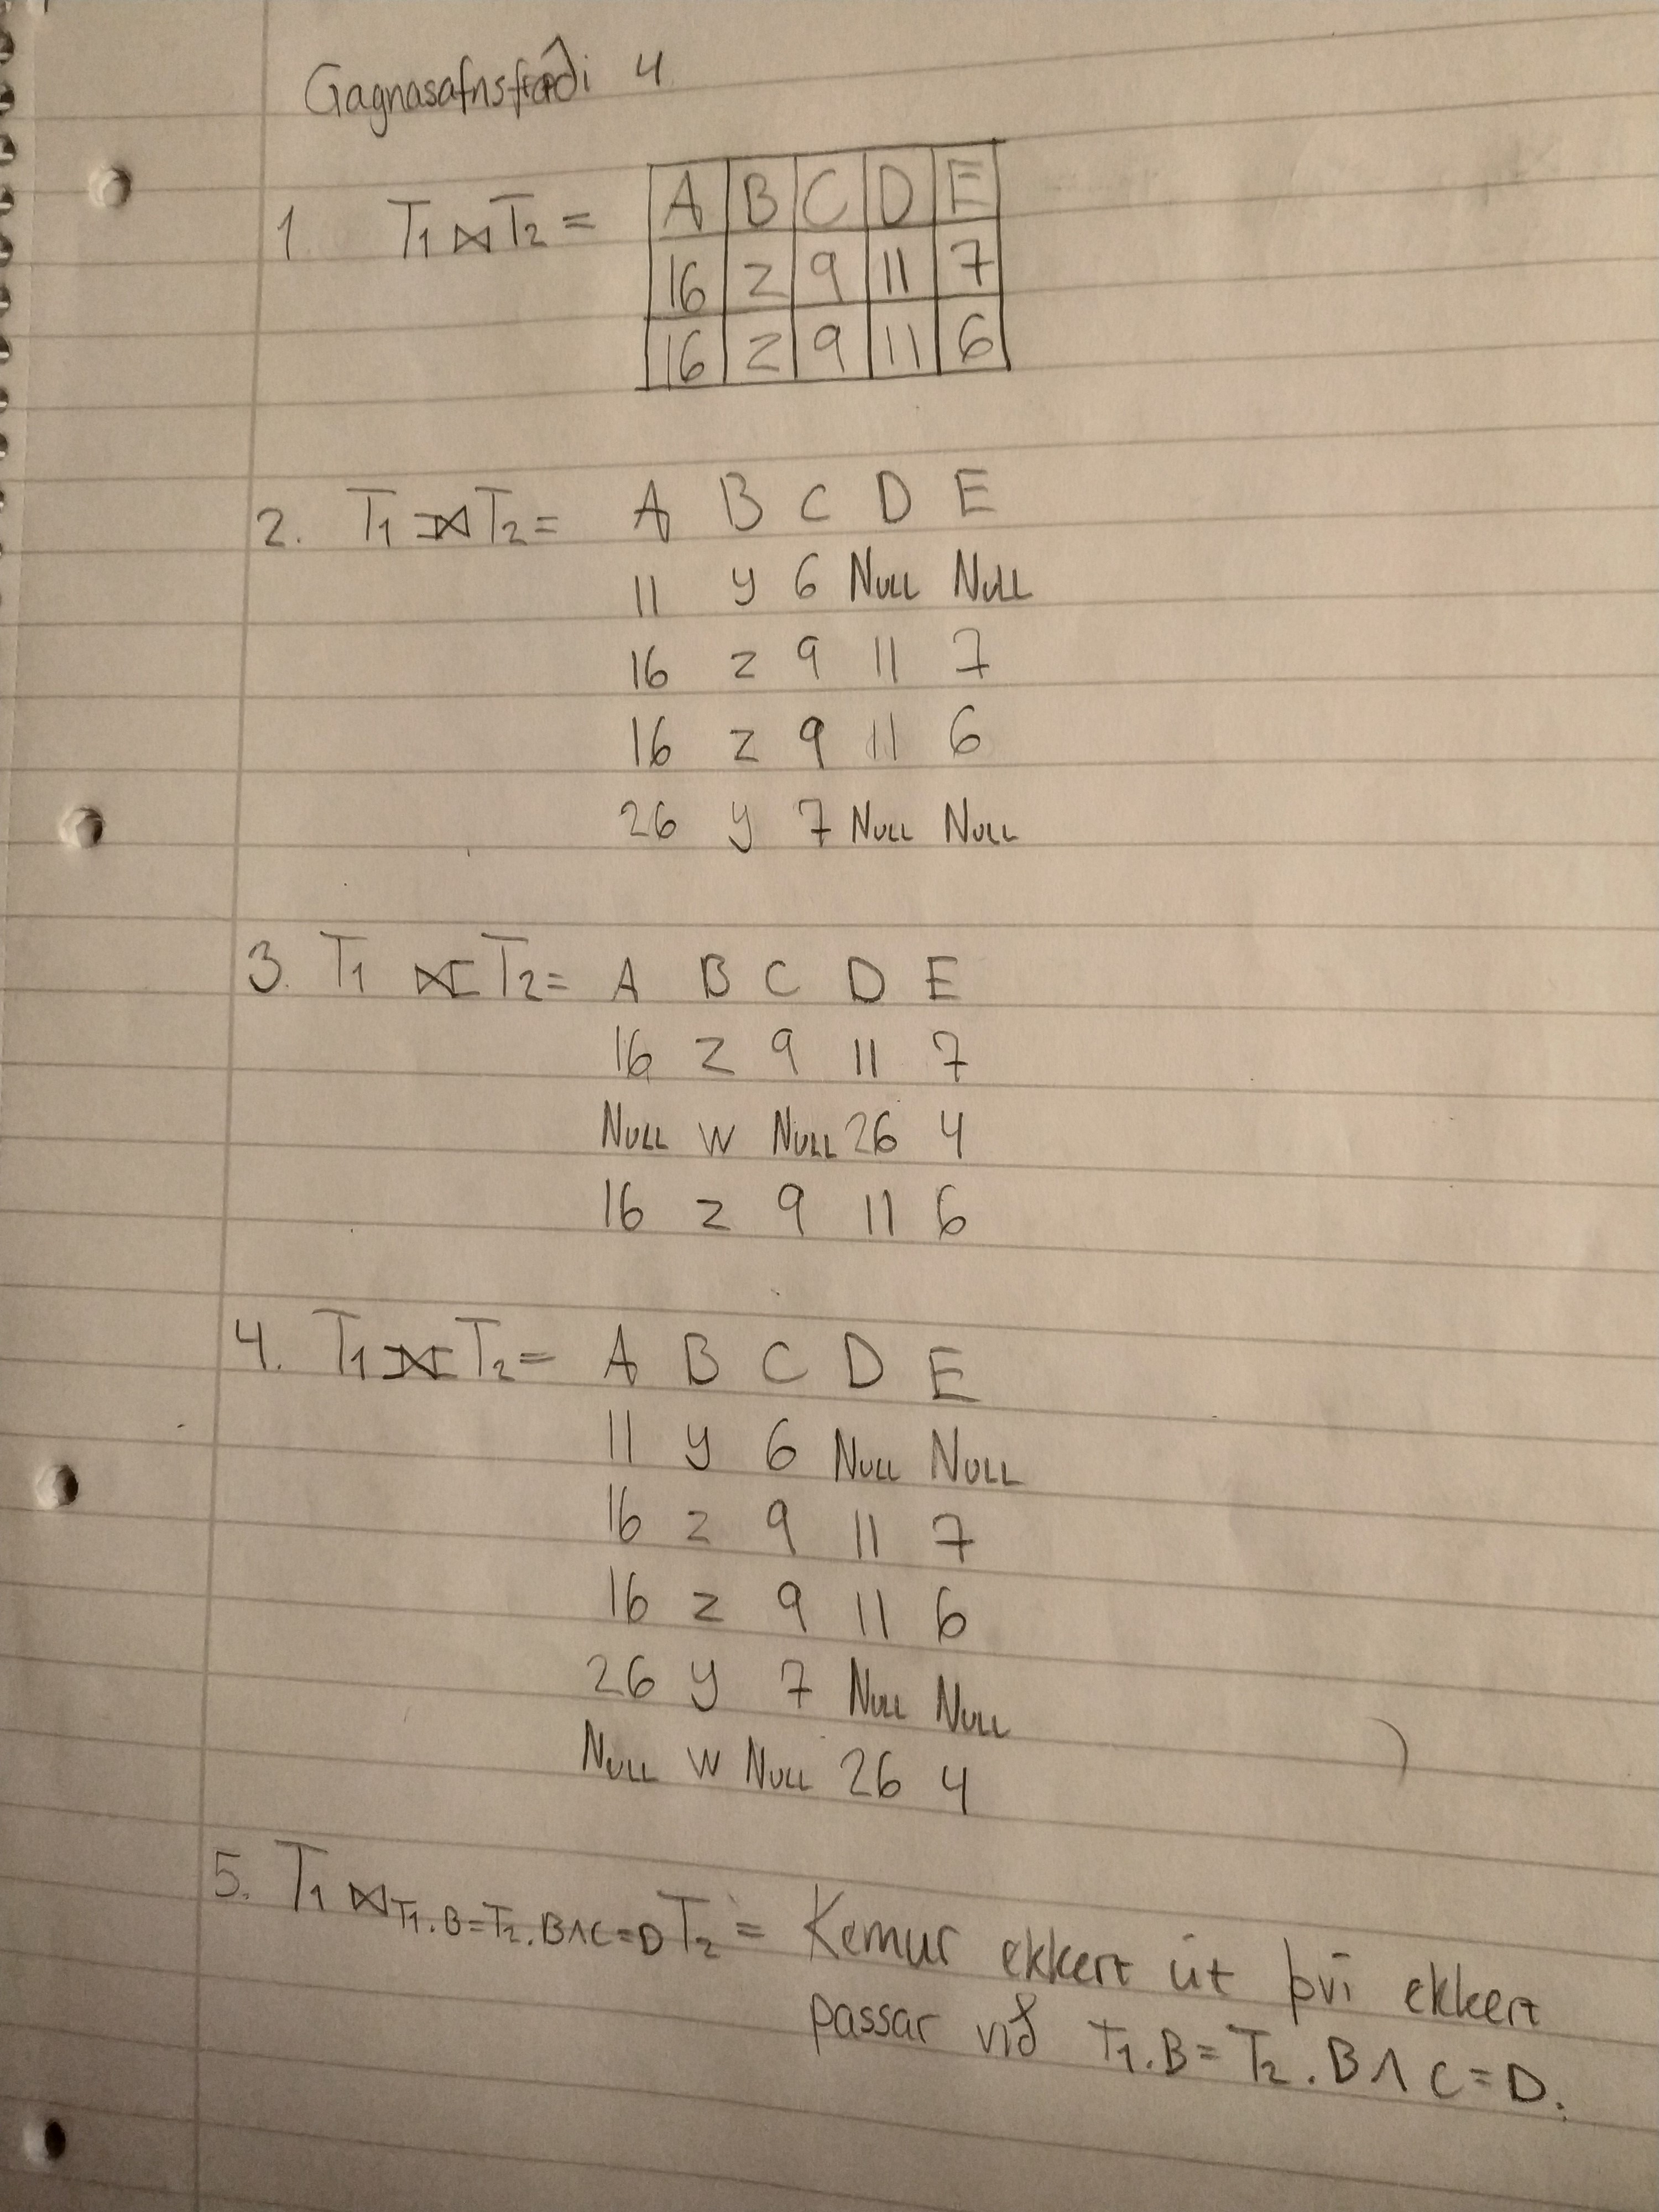 Gagnasafnsfræði 4
1. T₁ ⋈ T₂ = A B C D E
16 z 9 11 7
16 z 9 11 6
2. T₁ ⟕ T₂ = A B C D E
11 y 6 NULL NULL
16 z 9 11 7
16 z 9 11 6
26 y 7 NULL NULL
3. T₁ ⟖ T₂ = A B C D E
16 z 9 11 7
NULL W NULL 26 4
16 z 9 11 6
4. T₁ ⟗ T₂ = A B C D E
11 y 6 NULL NULL
16 z 9 11 7
16 z 9 11 6
26 y 7 NULL NULL
NULL W NULL 26 4
5. T₁ ⋈ T₁.B=T₂.B∧C=D T₂ = Kemur ekkert út því ekkert
passar við T₁.B = T₂.B ∧ C = D.